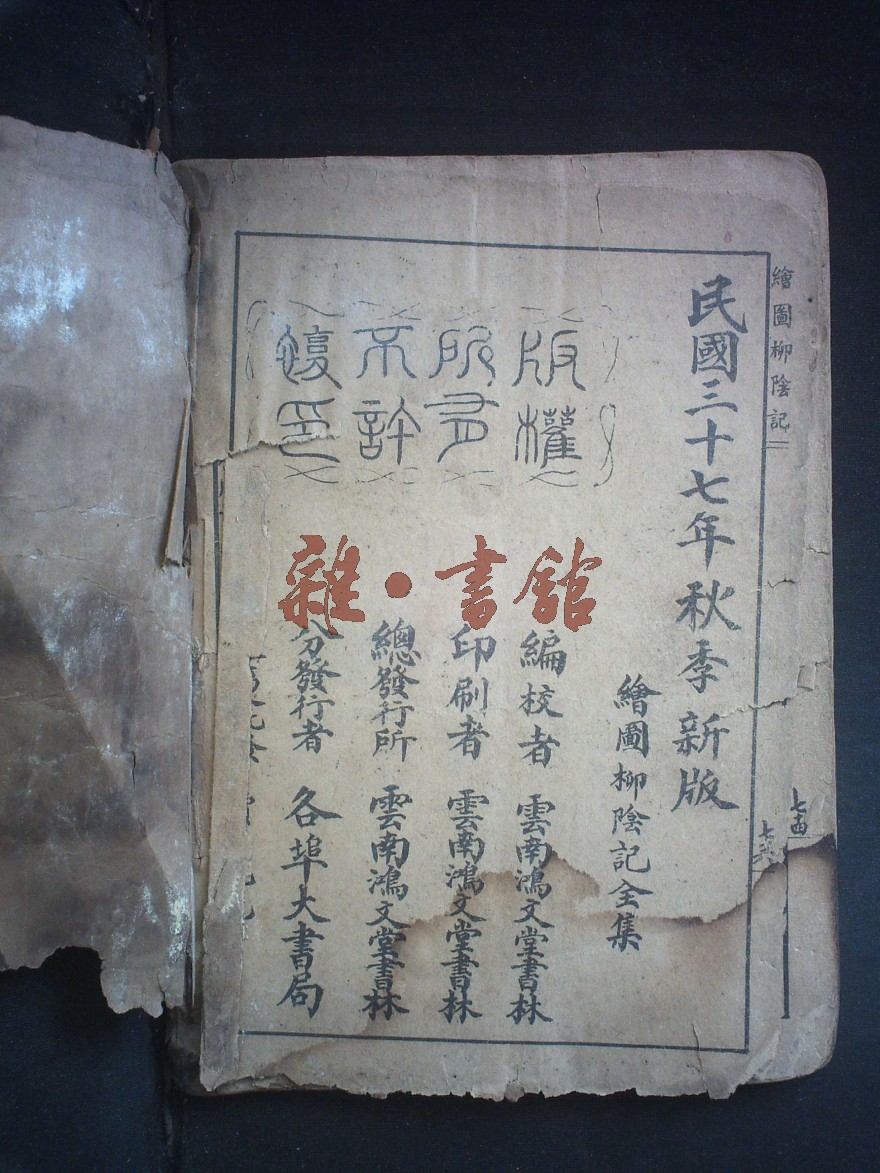 繪圖柳陰記
民國三十七年秋季新版
繪圖柳陰記全集
版權
所有
不許
翻印
編校者 雲南鴻文堂書林
印刷者 雲南鴻文堂書林
總發行所 雲南鴻文堂書林
分發行者 各埠大書局
雜·書館